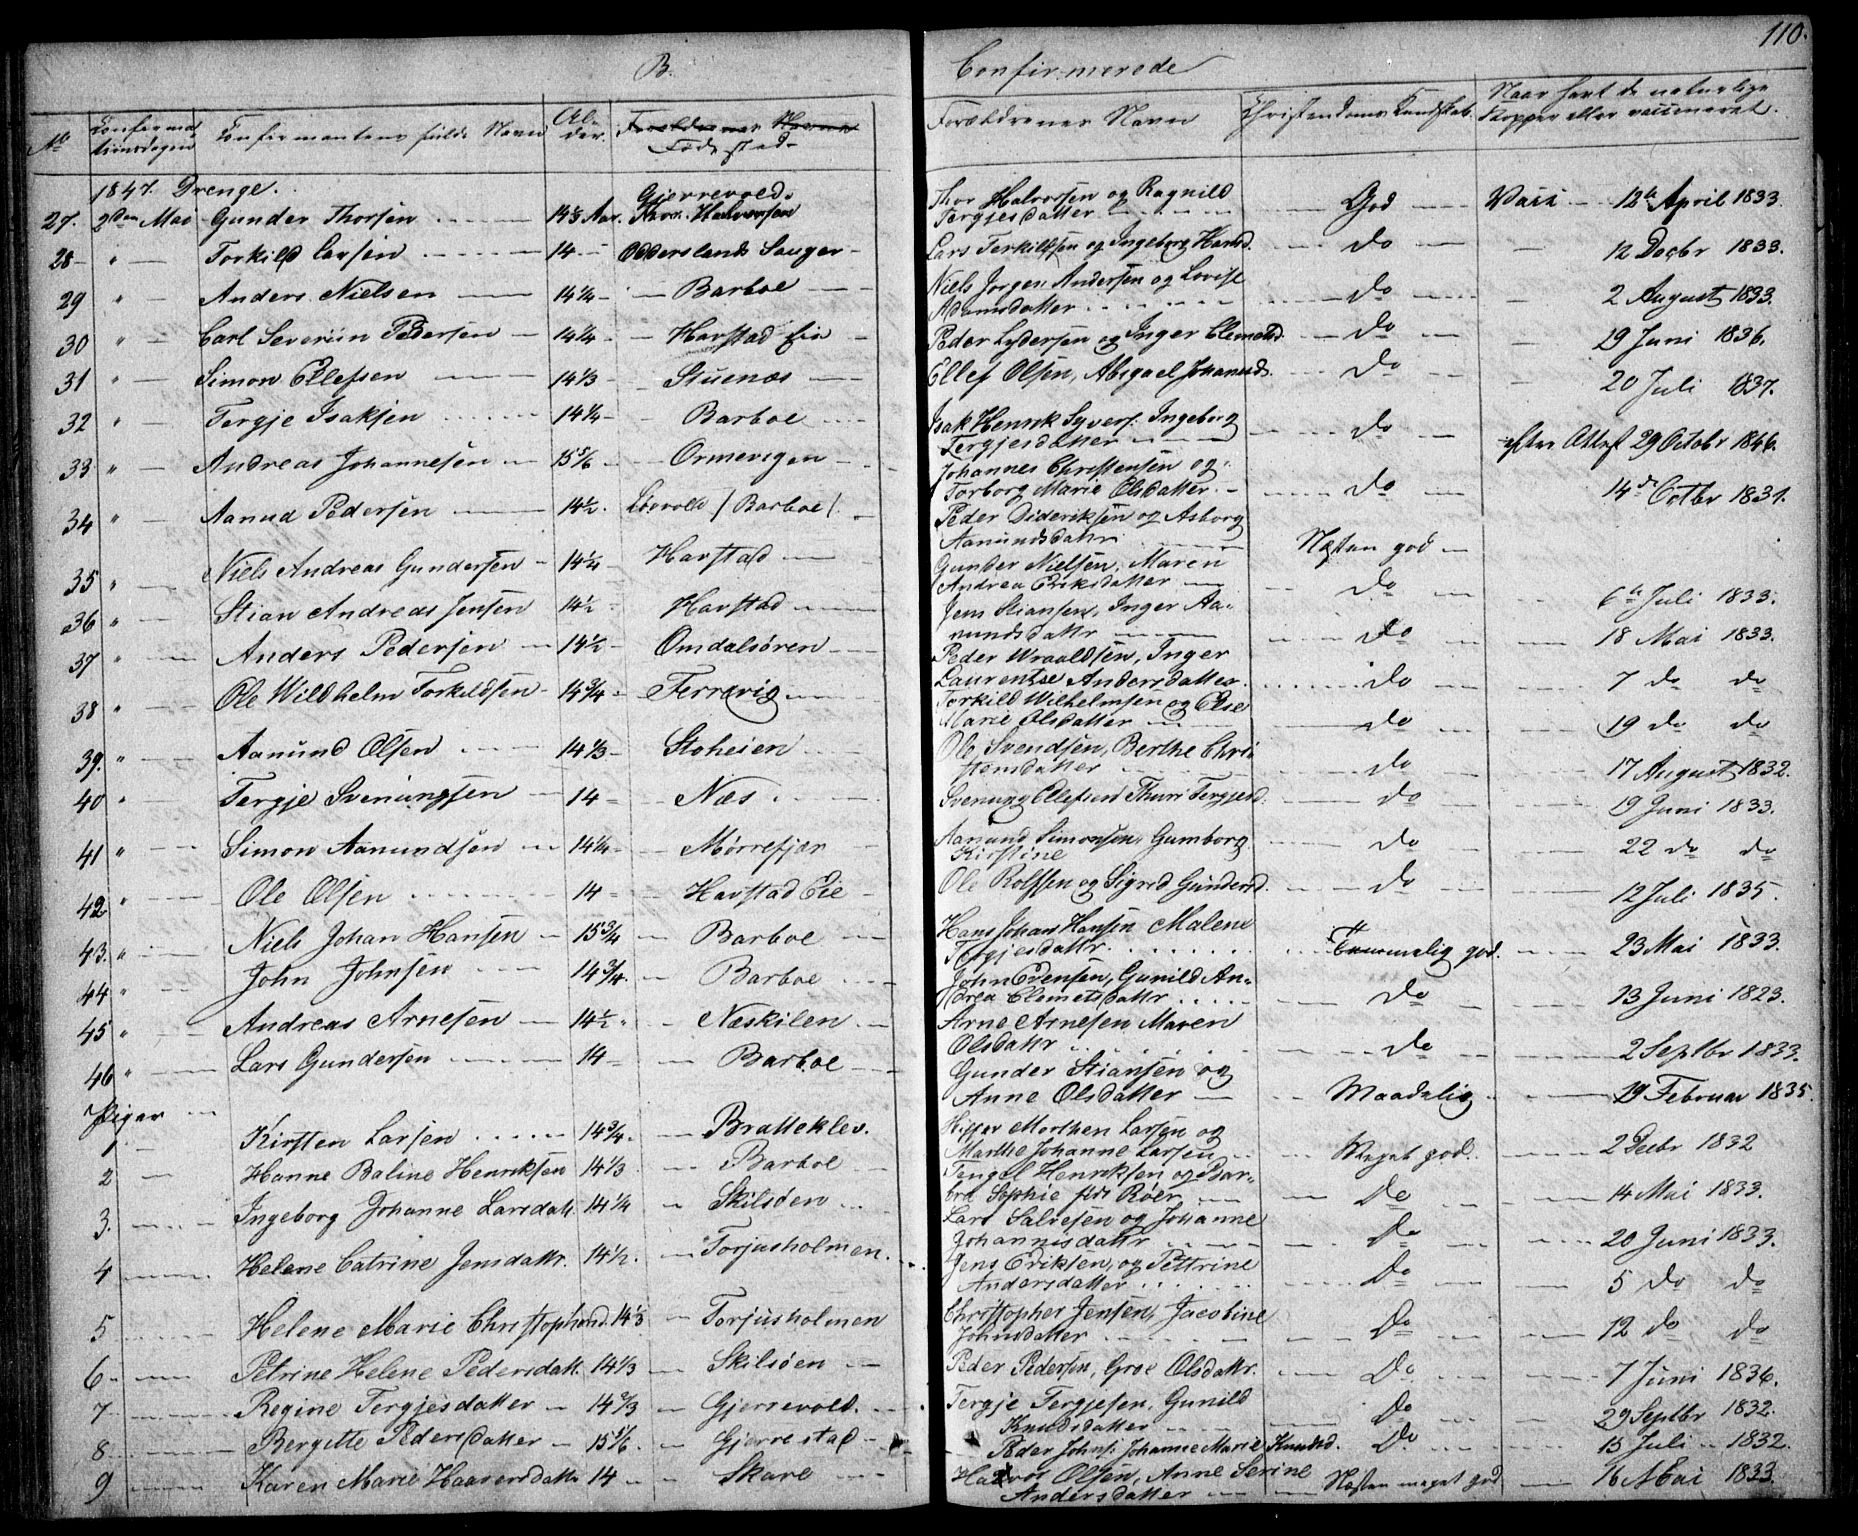 B. Confirmerede 110.
No Confirmationsdagen Confirmantens fulde Navn Alder. Forældrenes Navne Fødested Forældrenes Navn Christendoms Kundskab. Naar havt de naturlige Kopper eller vaccineret.
1847. Drenge. Gjerrevold. Thor Halvorsen og Ragnild
27. 2den Mai Gunder Thorsen 14 1/3 Aar. Thor Halvorsen Tergjesdatter God Vacc 12te April 1833.
28 " Torkild Larsen 14 Oddersland Sauger Lars Terkildsen og Ingeborg Hansd. do 12 Decbr 1833.
29 " Anders Nielsen 14 1/4 Barboe Niels Jørgen Andersen og Lovise
Adamsdatter do 2 August 1833.
30 " Carl Severin Pedersen 14 1/4 Havstad Eie Peder Lydersen og Inger Clemetsd. do 29 Juni 1836.
31 " Simon Ellefsen 14 1/3 Stuenæs Ellef Olsen, Abigael Johannesd. do 20 Juli 1837.
32 " Tergje Isaksen 14 1/4 Barboe Isak Henrik Syvers. Ingeborg
Tergjesdatter do efter Attest 29 Octobr 1846.
33 " Andreas Johannesen 15 5/6 Ormevigen Johannes Christensen og
Torborg Marie Olsdatter do 14de Octbr 1831.
34 " Aanud Pedersen 14 1/2 Løvold (Barboe) Peder Dideriksen og Asborg
Aanundsdatr Næsten god
35 " Niels Andreas Gundersen 14 1/4 Havstad Gunder Nielsen, Maren
Andrea Eriksdatter do 6te Juli 1833.
36 " Stian Andreas Jensen 14 1/2 Havstad Jens Stiansen, Inger Aa-
nundsdattr do 18 Mai 1833.
37 " Anders Pedersen 14 1/2 Omdalsören Peder Wraaldsen, Inger
Laurentse Andersdatter do 7 do do
38 " Ole Wildhelm Torkildsen 14 3/4 Terrevig Torkild Wilhelmsen og Else
Marie Olsdatter do 19 do do
39. " Aanund Olsen 14 1/3 Stoheien Ole Svendsen, Berthe Chri
stensdatter do 17 August 1832.
40 " Tergje Sveningsen 14 Næs Svenung Ellefsen Thuri Tergjesd. do 19 Juni 1833.
41 " Simon Aanundsen 14 1/4 Mørrefjær Aanund Simonsen, Gumborg
Kirstine do 22 do do
42 " Ole Olsen 14 Havstad Eie Ole Rolfsen og Sigrid Gundersd. do 12 Juli 1835.
43. " Niels Johan Hansen 15 3/4 Barboe Hans Johan Hansen Malene
Tergjesdattr. Temmelig god. 23 Mai 1833.
44 " John Johnsen 14 3/4. Barboe John Evensen, Gunild An-
drea Clemetsdattr do 13 Juni 1823.
45 " Andreas Arnesen 14 1/2 Næskilen Arne Arnesen Maren
Olsdattr do 2 Septbr 1833.
46 " Lars Gundersen 14 Barboe Gunder Stiansen og
Anne Olsdatter Maadelig 19 Februar 1835.
Piger
1 Kirsten Larsen 14 3/4. Bratteklev. Morthen Larsen og
Marthe Johanne Larsen Meget god. 2 Decbr 1832
2 Hanne Baline Henriksen 14 1/3 Barboe Tengel Henriksen og Bar-
bra Sophie født Röer Do 14 Mai 1833.
3. Ingeborg Johanne Larsdatt. 14 1/4 Skilsöen Lars Salvesen og Johanne
Johannisdattr Do 20 Juni 1833.
4 Helene Catrine Jensdattr. 14 1/2. Torjusholmen Jens Eriksen, og Pettrine
Andersdatter Do 5 do do
5 Helene Marie Christophersd. 14 1/3 Torjusholmen Christopher Jensen, Jacobine
Johnsdatter Do 12 do do
6. Petrine Helene Pedersdatt. 14 1/3 Skilsöen Peder Pedersen, Groe Olsdattr. Do 7 Juni 1836.
7 Regine Tergjesdatter 14 2/3 Gjerrevold. Tergje Tergjesen, Gunild
Knudsdatter Do 29 Septbr 1832.
8 Bergitte Pedersdatter 15 1/6 Gjerrestad Peder Johns. Johanne Marie Knudsd. Do 15 Juli 1832.
9 Karen Marie Haaversdattr 14 Skare Olsen, Anne Serine
Andersdatter Næsten meget god 16 Mai 1833.